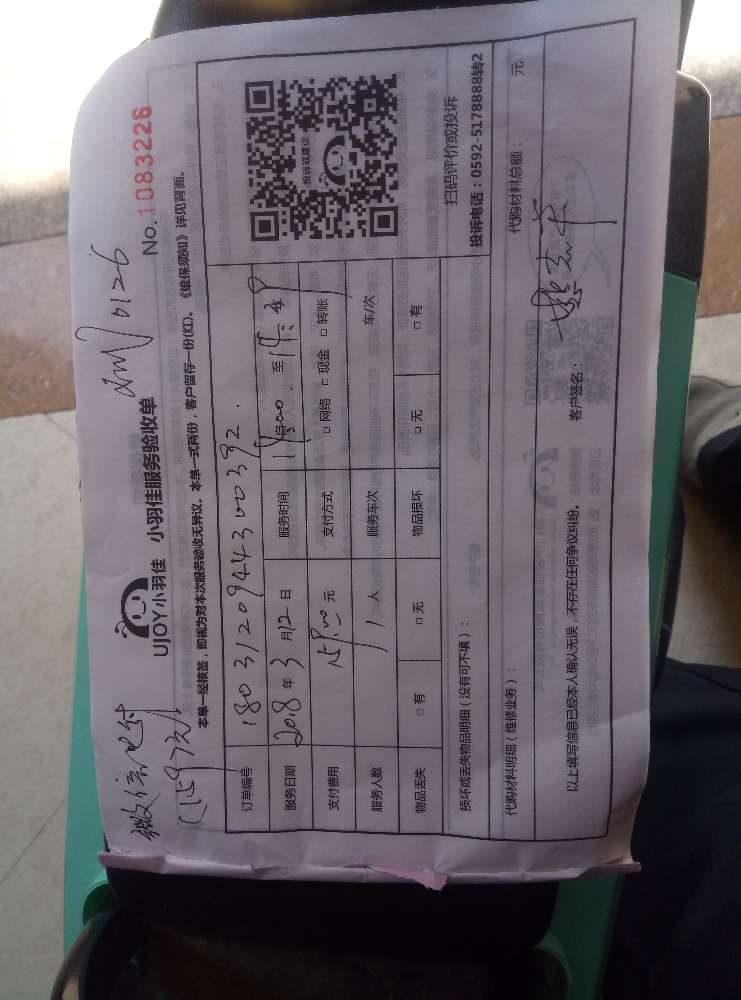 微信支付
(159元)
UJOY小羽佳 小羽佳服务验收单
0126
No.1083226
本单一经核签,即视为对本次服务验收无异议。本单一式两份,客户留存一份(红)。《维保须知》详见背面。
订单编号 18031209443 00392
服务日期 2018年3月12日 服务时间 自 :00 至 14:
支付费用 元 支付方式 □网络 □现金 □转账
服务人数 1人 服务车次 车/次
物品丢失 □有 □无 物品损坏 □无 □有
投诉或建议
扫码评价或投诉
投诉电话:0592-5178888转2
损坏或丢失物品明细(没有可不填):
代购材料明细(维修业务): 代购材料总额: 元
以上填写信息已经本人确认无误,不存在任何争议纠纷。 客户签名: